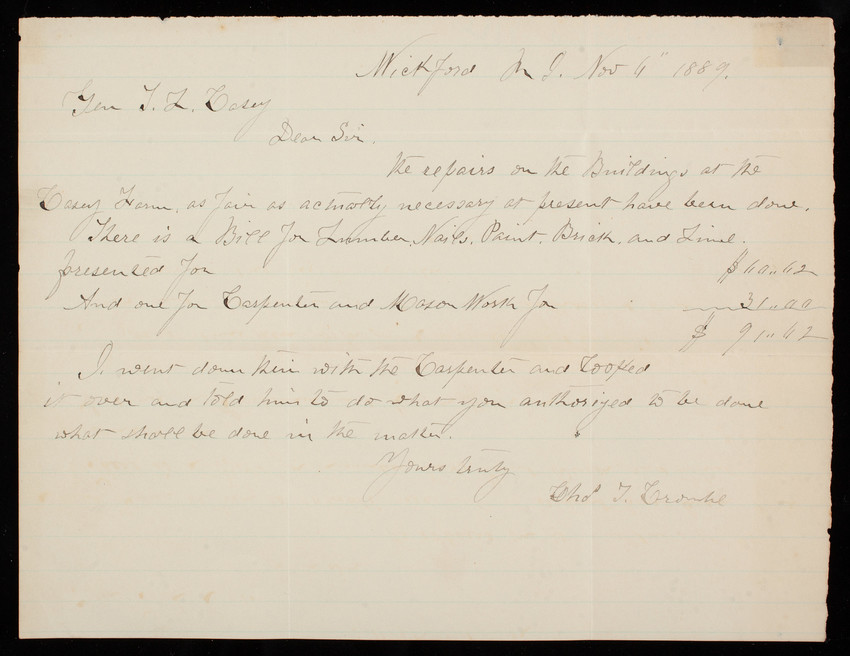 Wickford R I. Nov 6" 1889.
Gen T. L. Casey
Dear Sir.
the repairs on the Buildings at the
Casey Farm, as fair as actually necessary at present have been done.
There is a Bill for Lumber, Nails, Paint, Brick, and Lime.
presented for $60.,62
And one for Carpenter and Mason Work for 31.,00
$ 91.,62
I. went down their with the Carpenter and Looked
it over and told him to do what you authorized to be done
what shall be done in the matter.
Yours truly
Chas T. Crombe